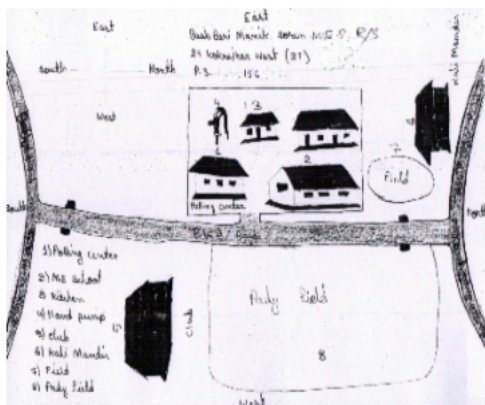 East
East
Baah Bari Manik Soron M.E.S. R/S
24 Kokrajhar West (ST)
P.S. 156
South North
West
Kali Mandir
4
3
1
2
7
6
Polling center
Field
South
North
Road
1) Polling center
2) ME School
3) Kitchen
4) Hand pump
5) club
6) Kali Mandir
7) Field
8) Pady field
5
Club
Pady field
8
West